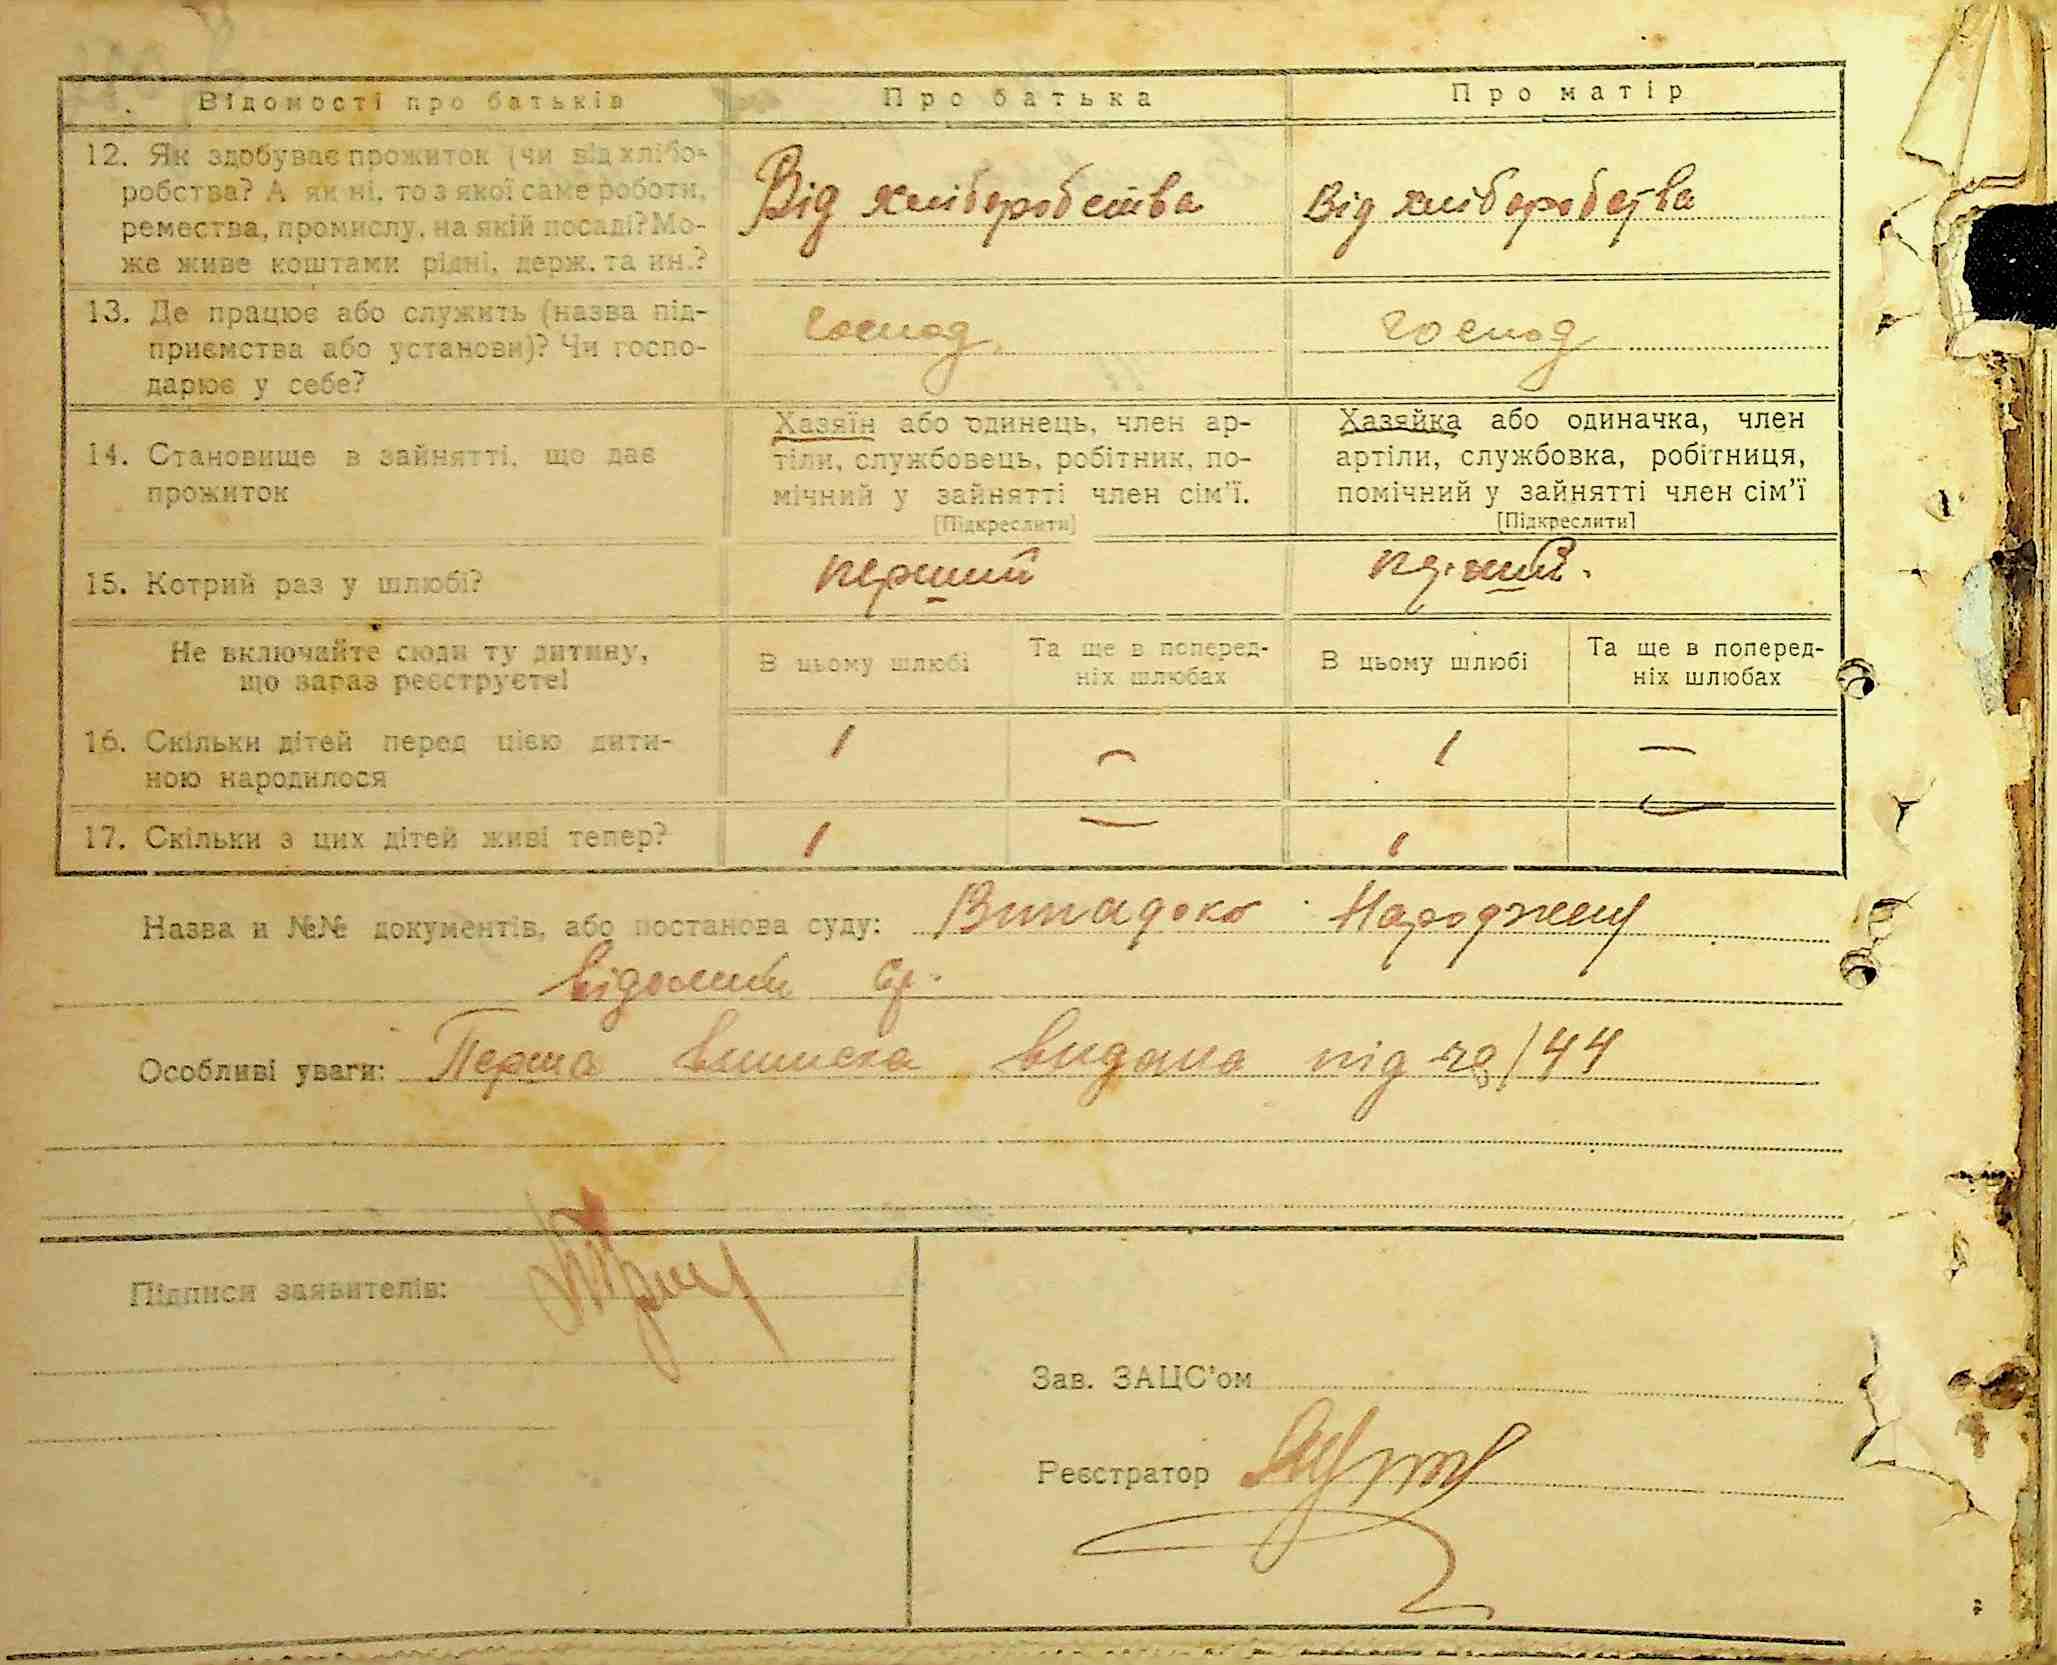 Відомості про батьків Про батька Про матір
12. Як здобуває прожиток (чи від хлібо-
робства? А як ні, то з якої саме роботи,
ремества, промислу, на якій посаді? Мо-
же живе коштами рідні, держ. та ин.?
Від хліборобства Від хліборобства
13. Де працює або служить (назва під-
приємства або установи)? Чи госпо-
дарює у себе?
господ. господ
14. Становище в зайнятті, що дає
прожиток
Хазяїн або одинець, член ар-
тіли, службовець, робітник, по-
мічний у зайнятті член сім'ї.
[Підкреслити]
Хазяйка або одиначка, член
артіли, службовка, робітниця,
помічний у зайнятті член сім'ї
[Підкреслити]
15. Котрий раз у шлюбі? перший
Не включайте сюди ту дитину,
що зараз реєструєте!
В цьому шлюбі
Та ще в поперед-
ніх шлюбах
В цьому шлюбі
Та ще в поперед-
ніх шлюбах
16. Скільки дітей перед цією дити-
ною народилося
1 — 1 —
17. Скільки з цих дітей живі тепер? 1 — 1 —
Назва и №№ документів, або постанова суду: Випадок
відомий
Особливі уваги: Перша виписка видана під /44
Підписи заявителів:
Зав. ЗАЦС'ом
Реєстратор